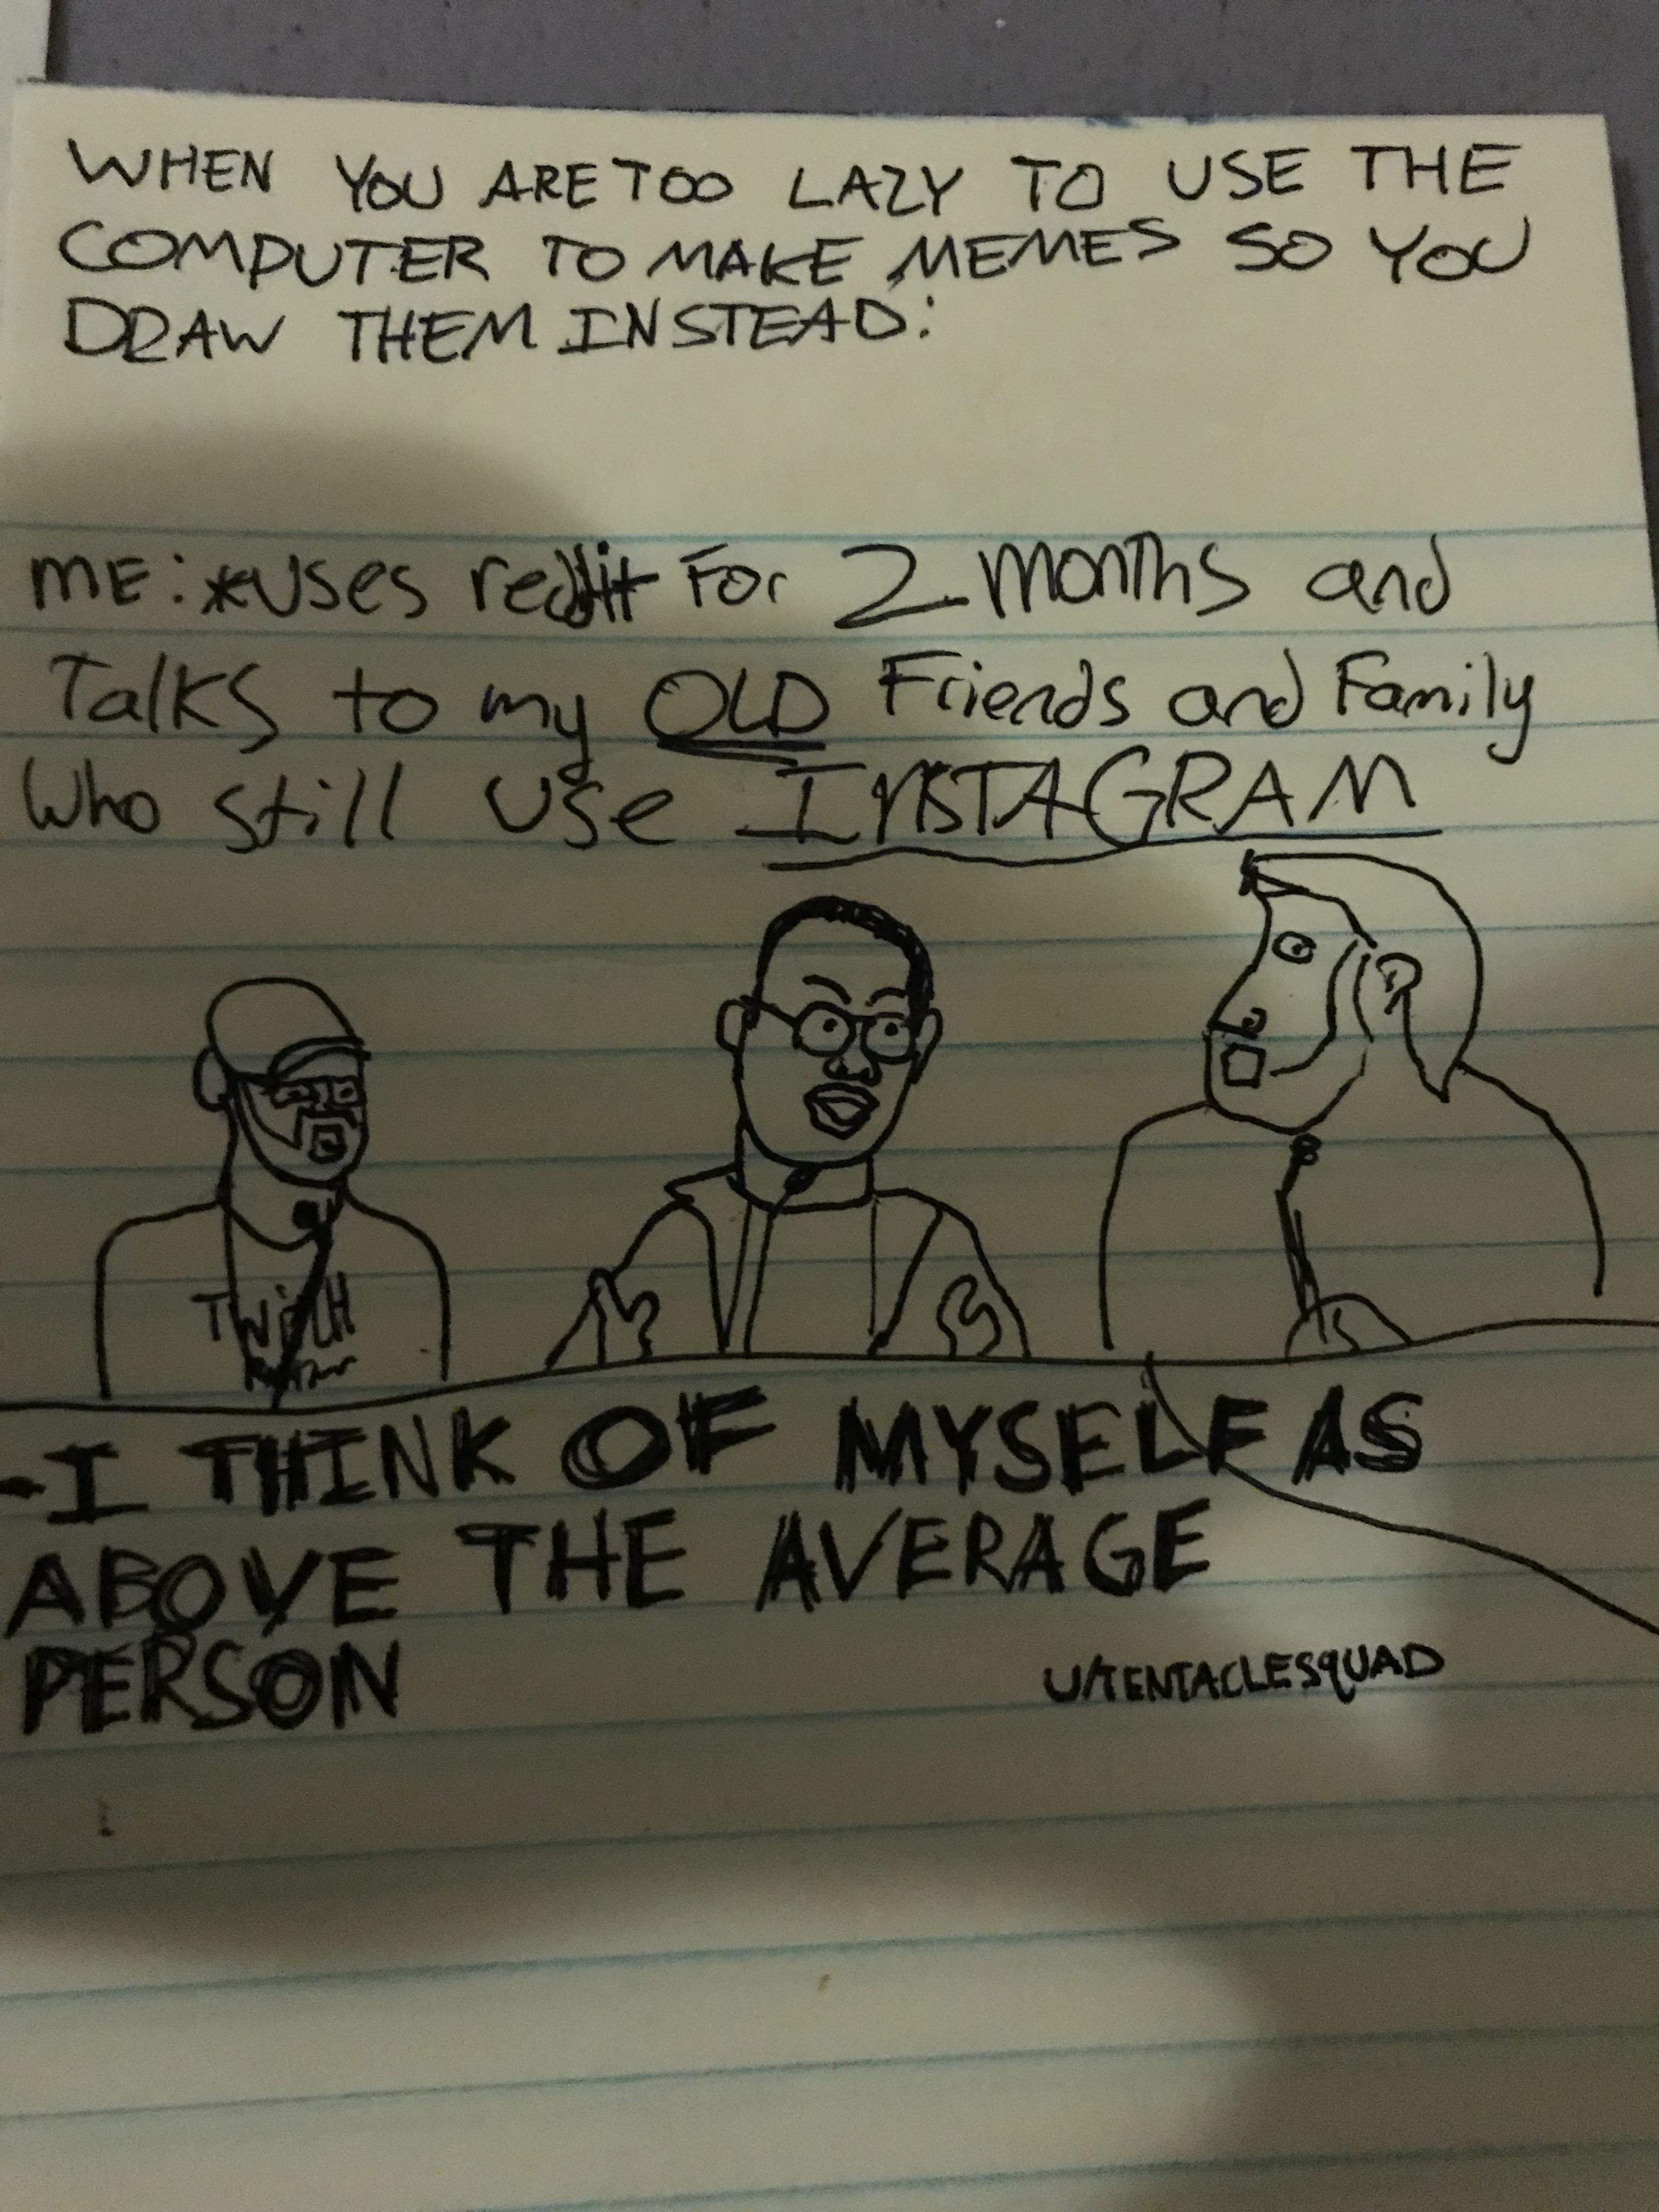 WHEN YOU ARE TOO LAZY TO USE THE
COMPUTER TO MAKE MEMES SO YOU
DRAW THEM INSTEAD:
ME: *uses reddit For 2 months and
Talks to my OLD Friends and Family
who still use INSTAGRAM
TWiTCH
-I THINK OF MYSELF AS
ABOVE THE AVERAGE
PERSON
U/TENTACLESqUAD